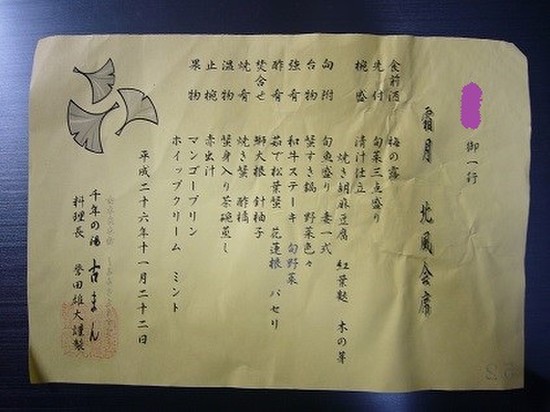 御一行
霜月 北風会席
食前酒 梅の露
先付 旬菜三点盛り
椀盛 清汁仕立
焼き胡麻豆腐 紅葉麩 木の芽
向附 旬魚盛り 妻一式
台物 蟹すき鍋 野菜色々
強肴 和牛ステーキ 旬野菜
酢肴 茹で松葉蟹 花蓮根 パセリ
焚合せ 鰤大根 針柚子
焼肴 焼き蟹 酢橘
温物 蟹身入り茶碗蒸し
止椀 赤出汁
果物 マンゴープリン
ホイップクリーム ミント
平成二十六年十一月二十二日
千年の湯 古まん
料理長 誉田雄大謹製